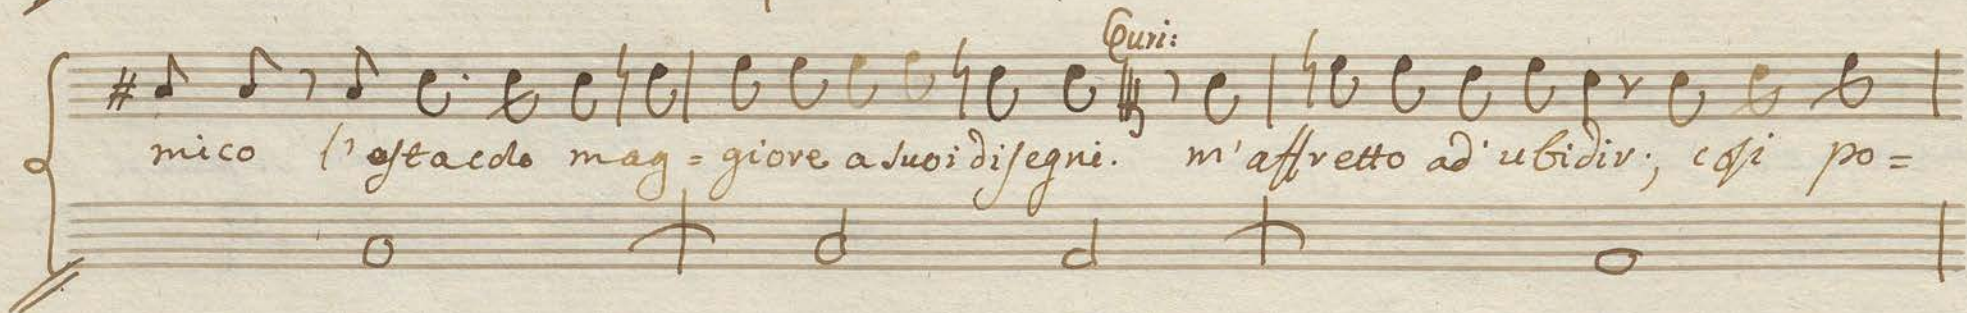 Curi:
mico l'ostacolo mag= giore a suoi disegni. m'affretto ad' ubidir; cosi po=